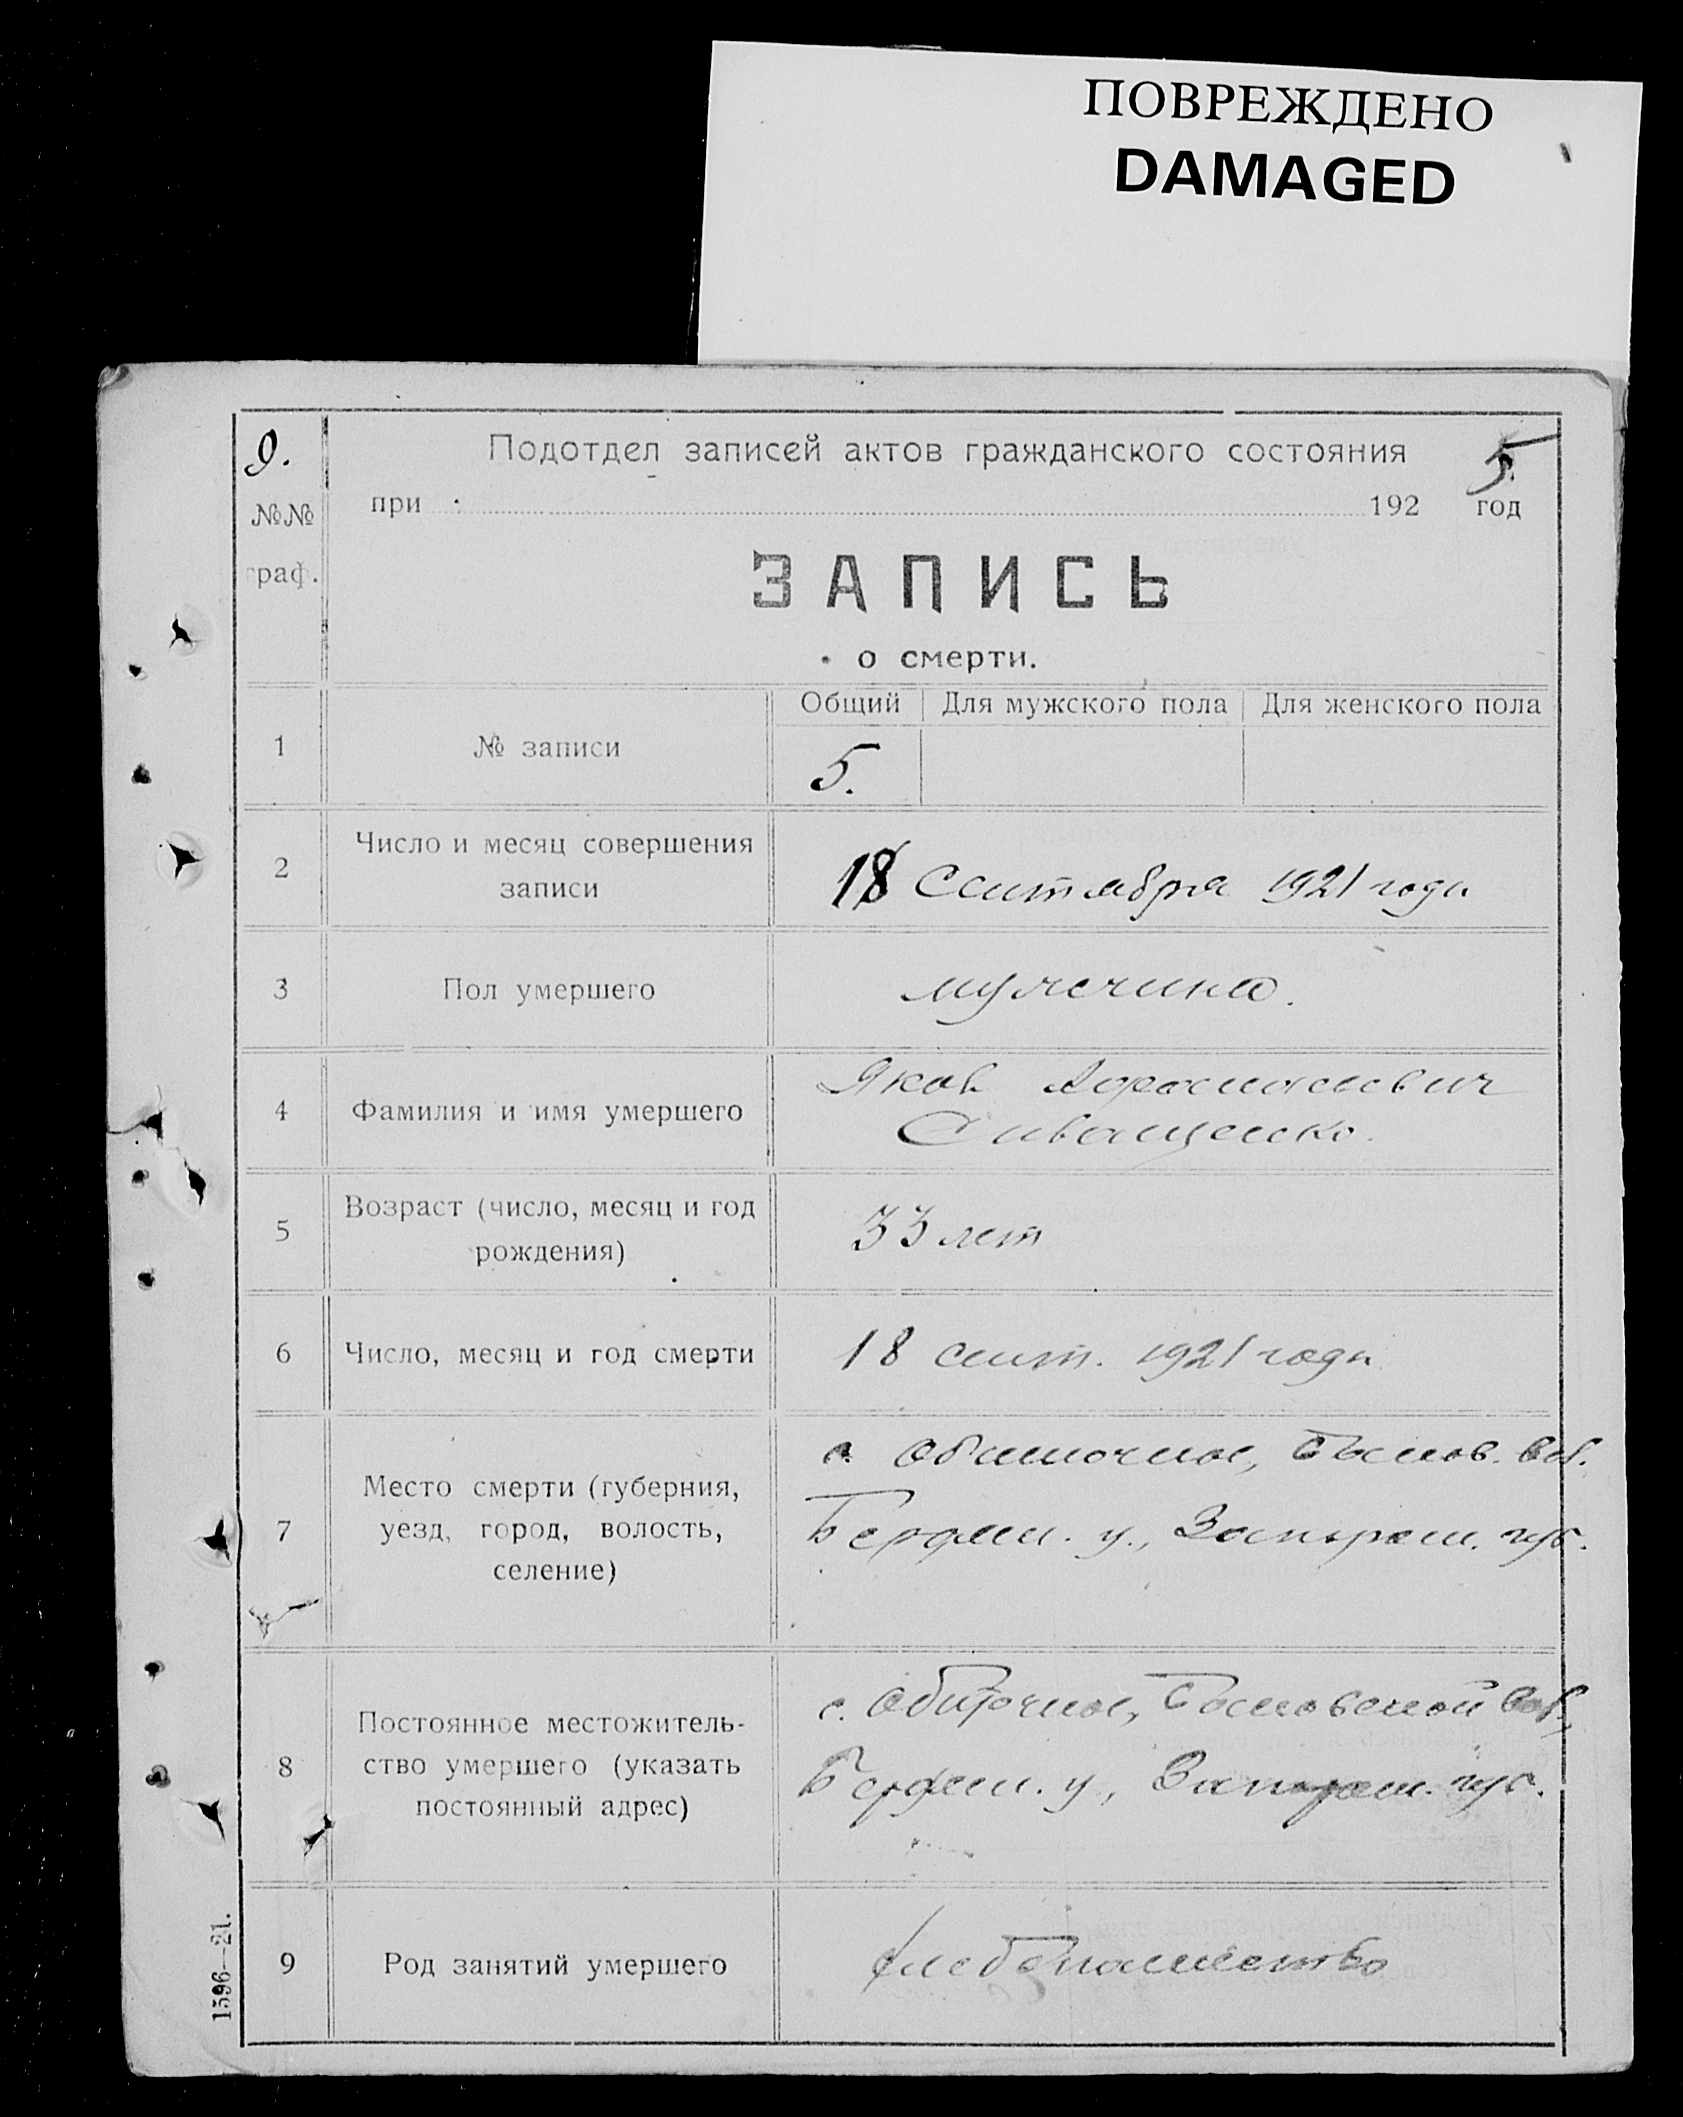 ПОВРЕЖДЕНО
DAMAGED
9.
Подотдел записей актов гражданского состояния
5.
№№
граф.
при 192 год
ЗАПИСЬ
о смерти.
Общий Для мужского пола Для женского пола
1 № записи 5.
2 Число и месяц совершения записи
18 Сентября 1921 года
3 Пол умершего мужчина.
4 Фамилия и имя умершего
Яков
Сиващенко.
5 Возраст (число, месяц и год
рождения)
33 лет
6 Число, месяц и год смерти 18 сент. 1921 года
7 Место смерти (губерния,
уезд, город, волость,
селение)
с. Обиточное, вол.
Бердян. у., Запорож. губ.
8 Постоянное местожитель-
ство умершего (указать
постоянный адрес)
с. Обиточное, вол.,
Бердян. у, Запорож. губ.
9 Род занятий умершего хлебопашество
1596—21.